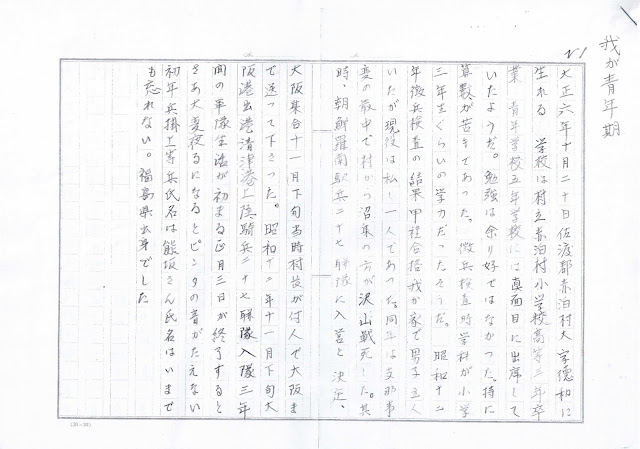 我が青年期
N1
大正六年十月二十日佐渡郡赤泊村大字徳和に
生れる 学校は村立赤泊村小学校高等三年卒
業 青年学校五年学校には真面目に出席して
いたようだ。勉強は余り好ではなかった。持に
算数が苦手であった。徴兵検査時学科が小学
三年生ぐらいの学力だったそうだ。 昭和十二
年徴兵検査の結果甲種合格我が家で男子五人
いたが現役は私し一人であった。同年は支那事
変の最中で村から沼集の方が沢山戦死した。其
時、朝鮮羅南騎兵二十七聯隊に入営と決定、
大阪集合十一月下旬当時村長が付人で大阪ま
で送って下さった。 昭和十二年十一月下旬大
阪港出港清津港上陸騎兵二十七聯隊入隊三年
間の軍隊生活が初まる正月三日が終了すると
さあ大変夜るになるとビンタの音がたえない
初年兵掛上等兵氏名は熊坂さん氏名はいまで
も忘れない。福島県出身でした
(20×20)